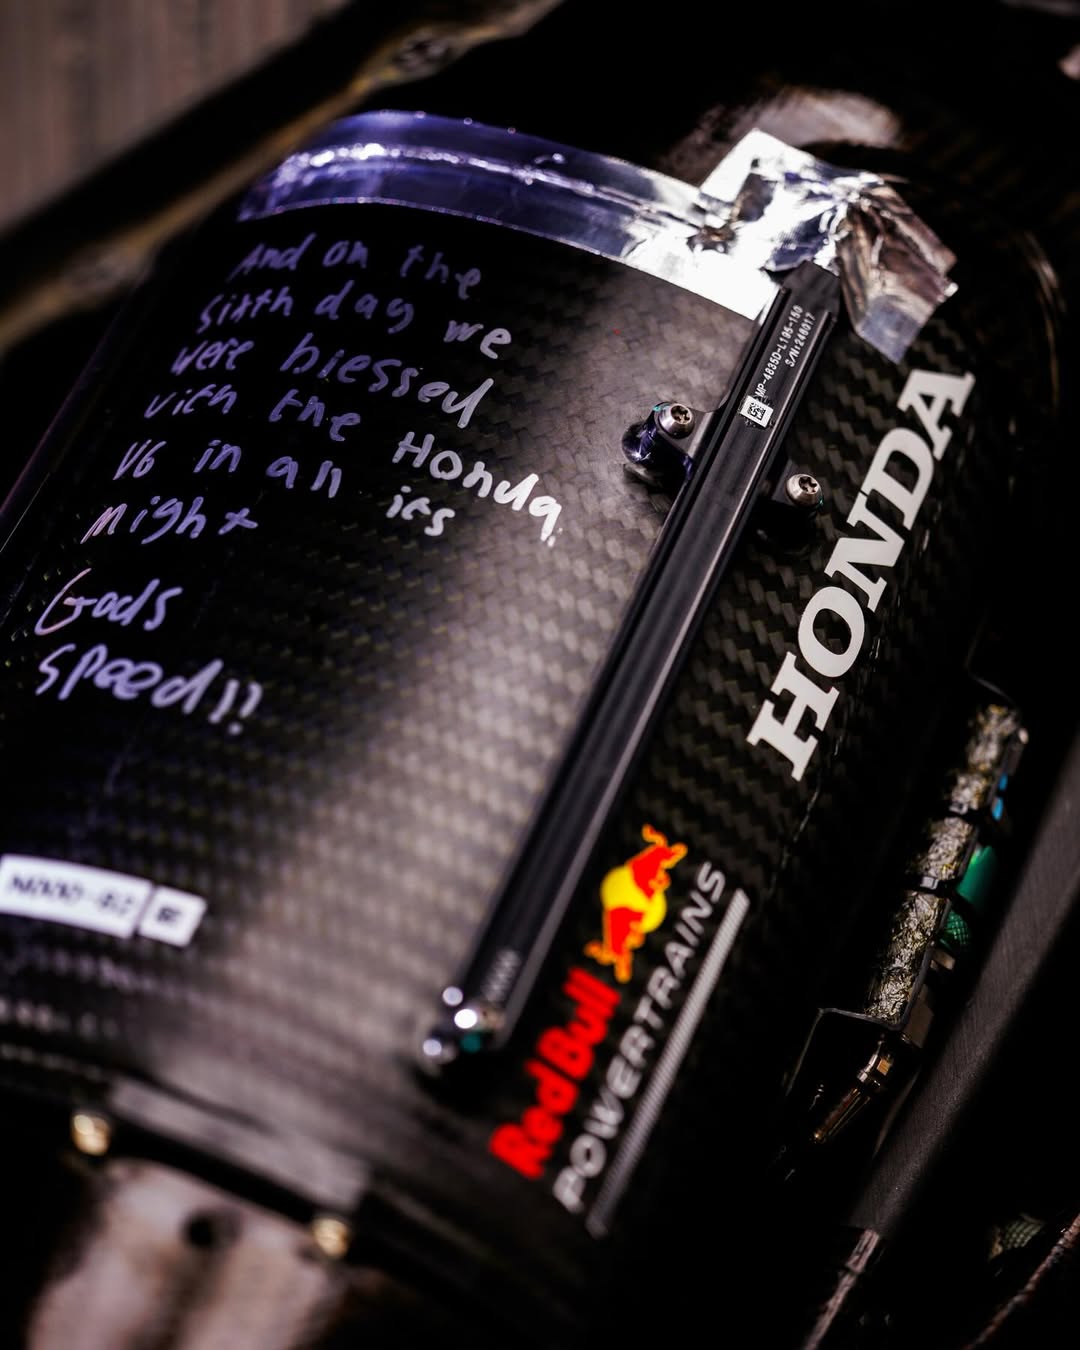 And on the
sixth day we
were blessed
with the Honda
V6 in all its
might
Gods
speed!!
MP-4835D-L195-150
S/N:248017
HONDA
Red Bull
POWERTRAINS